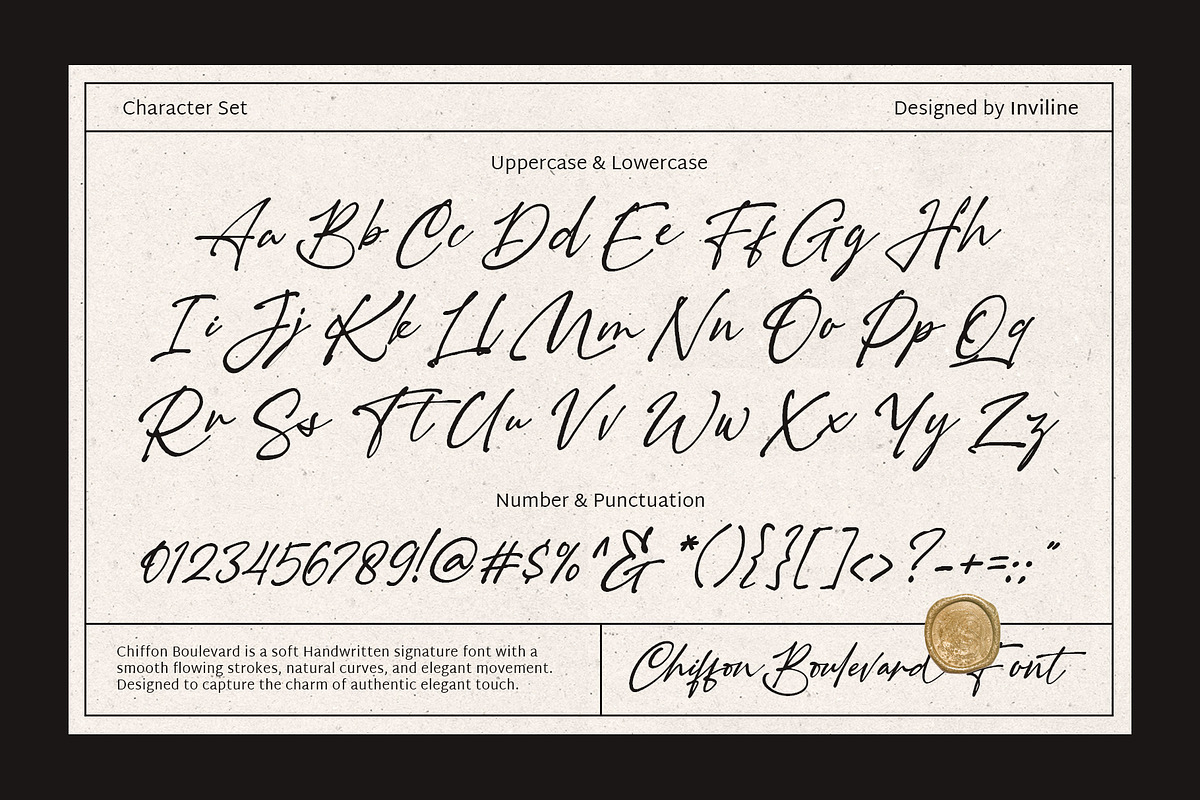 Character Set
Designed by Inviline
Uppercase & Lowercase
Aa Bb Cc Dd Ee Ff Gg Hh
Ii Jj Kk Ll Mm Nn Oo Pp Qq
Rr Ss Tt Uu Vv Ww Xx Yy Zz
Number & Punctuation
0123456789!@#$%^&*(){}[]<>?-+=:;"
Chiffon Boulevard is a soft Handwritten signature font with a
smooth flowing strokes, natural curves, and elegant movement.
Designed to capture the charm of authentic elegant touch.
Chiffon Boulevard Font